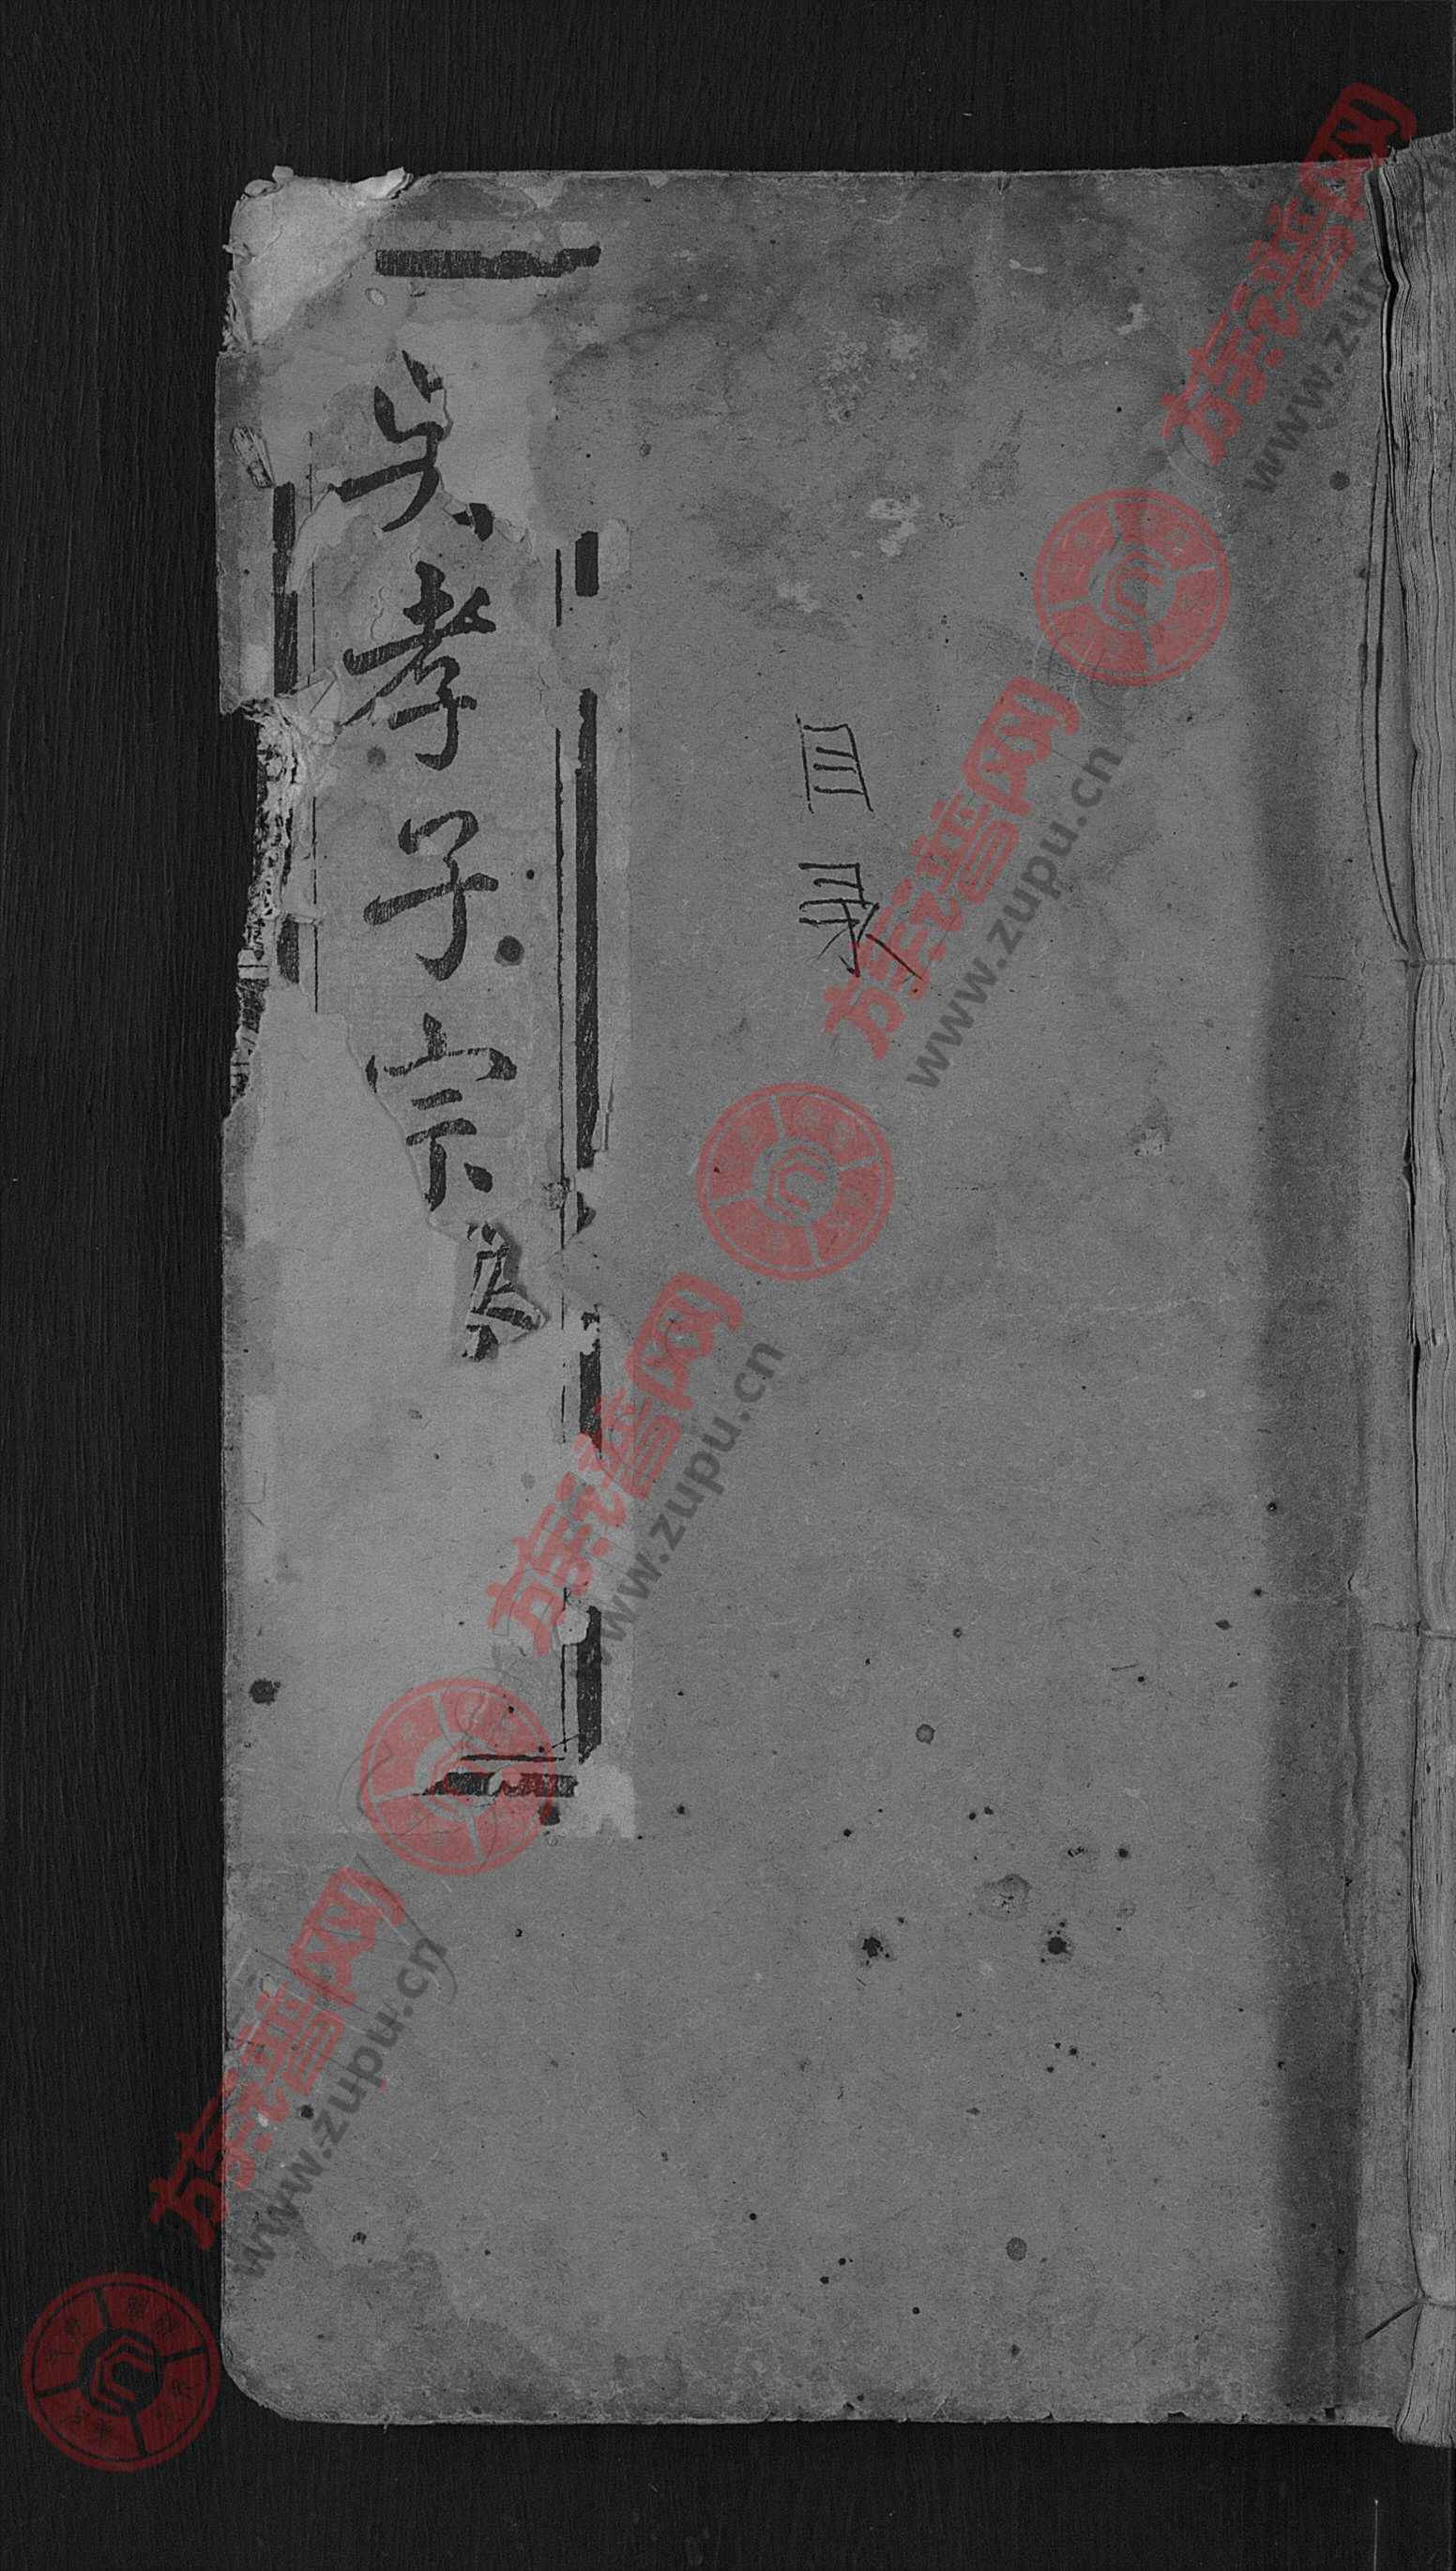 目录
吴孝子宗
族谱网
www.zupu.cn
族谱网
www.zupu.cn
族谱网
www.zupu.cn
族谱网
www.zupu.cn